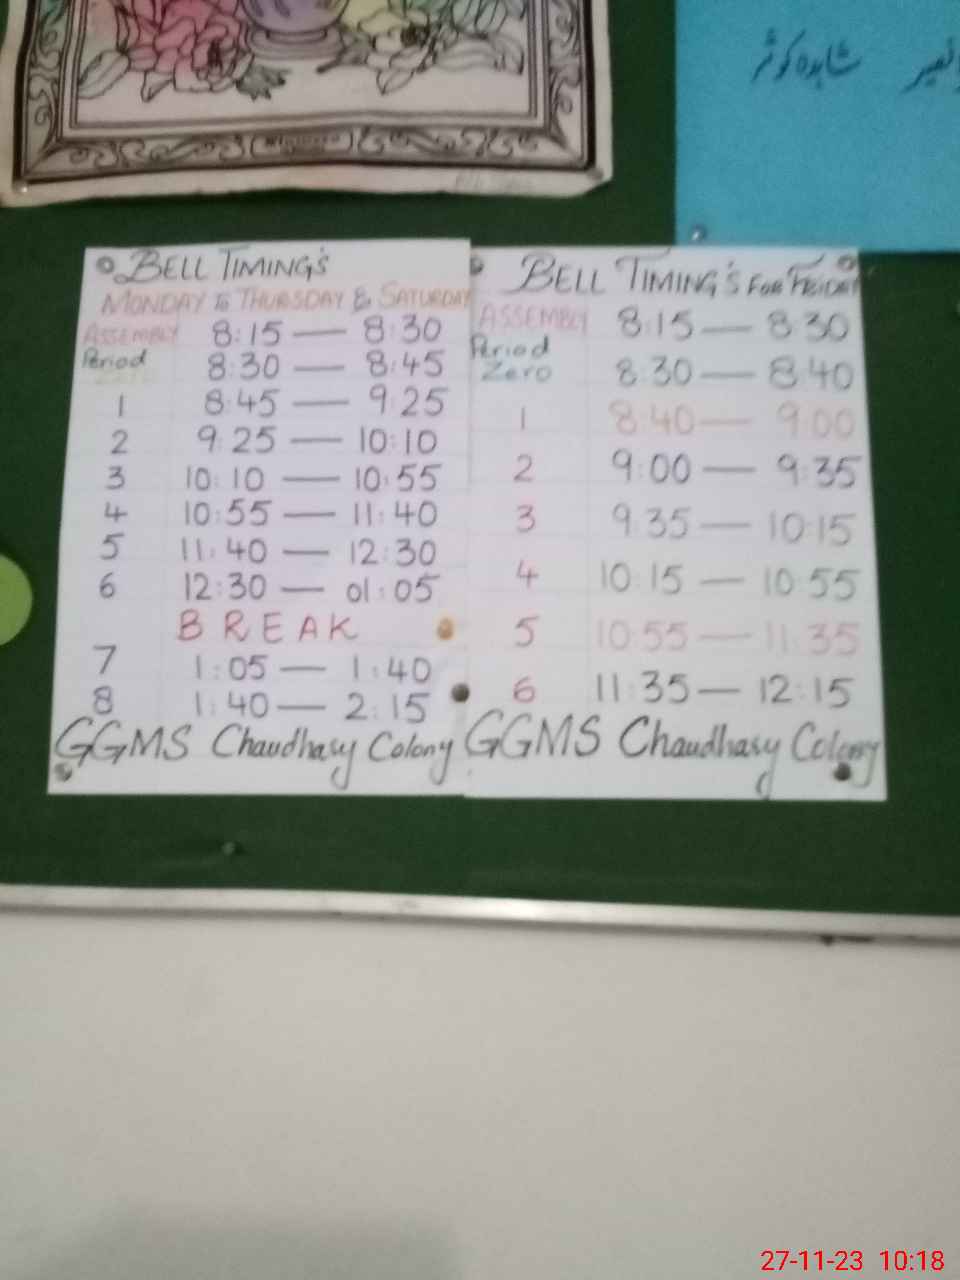 شاہدہ کوثر
BELL TIMING'S
MONDAY To THURSDAY & SATURDAY
ASSEMBLY 8:15 — 8:30
Period Zero 8:30 — 8:45
1 8:45 — 9:25
2 9:25 — 10:10
3 10:10 — 10:55
4 10:55 — 11:40
5 11:40 — 12:30
6 12:30 — 01:05
BREAK
7 1:05 — 1:40
8 1:40 — 2:15
GGMS Chaudhary Colony
BELL TIMING'S FOR FRIDAY
ASSEMBLY 8:15 — 8:30
Period Zero 8:30 — 8:40
1 8:40 — 9:00
2 9:00 — 9:35
3 9:35 — 10:15
4 10:15 — 10:55
5 10:55 — 11:35
6 11:35 — 12:15
GGMS Chaudhary Colony
27-11-23 10:18